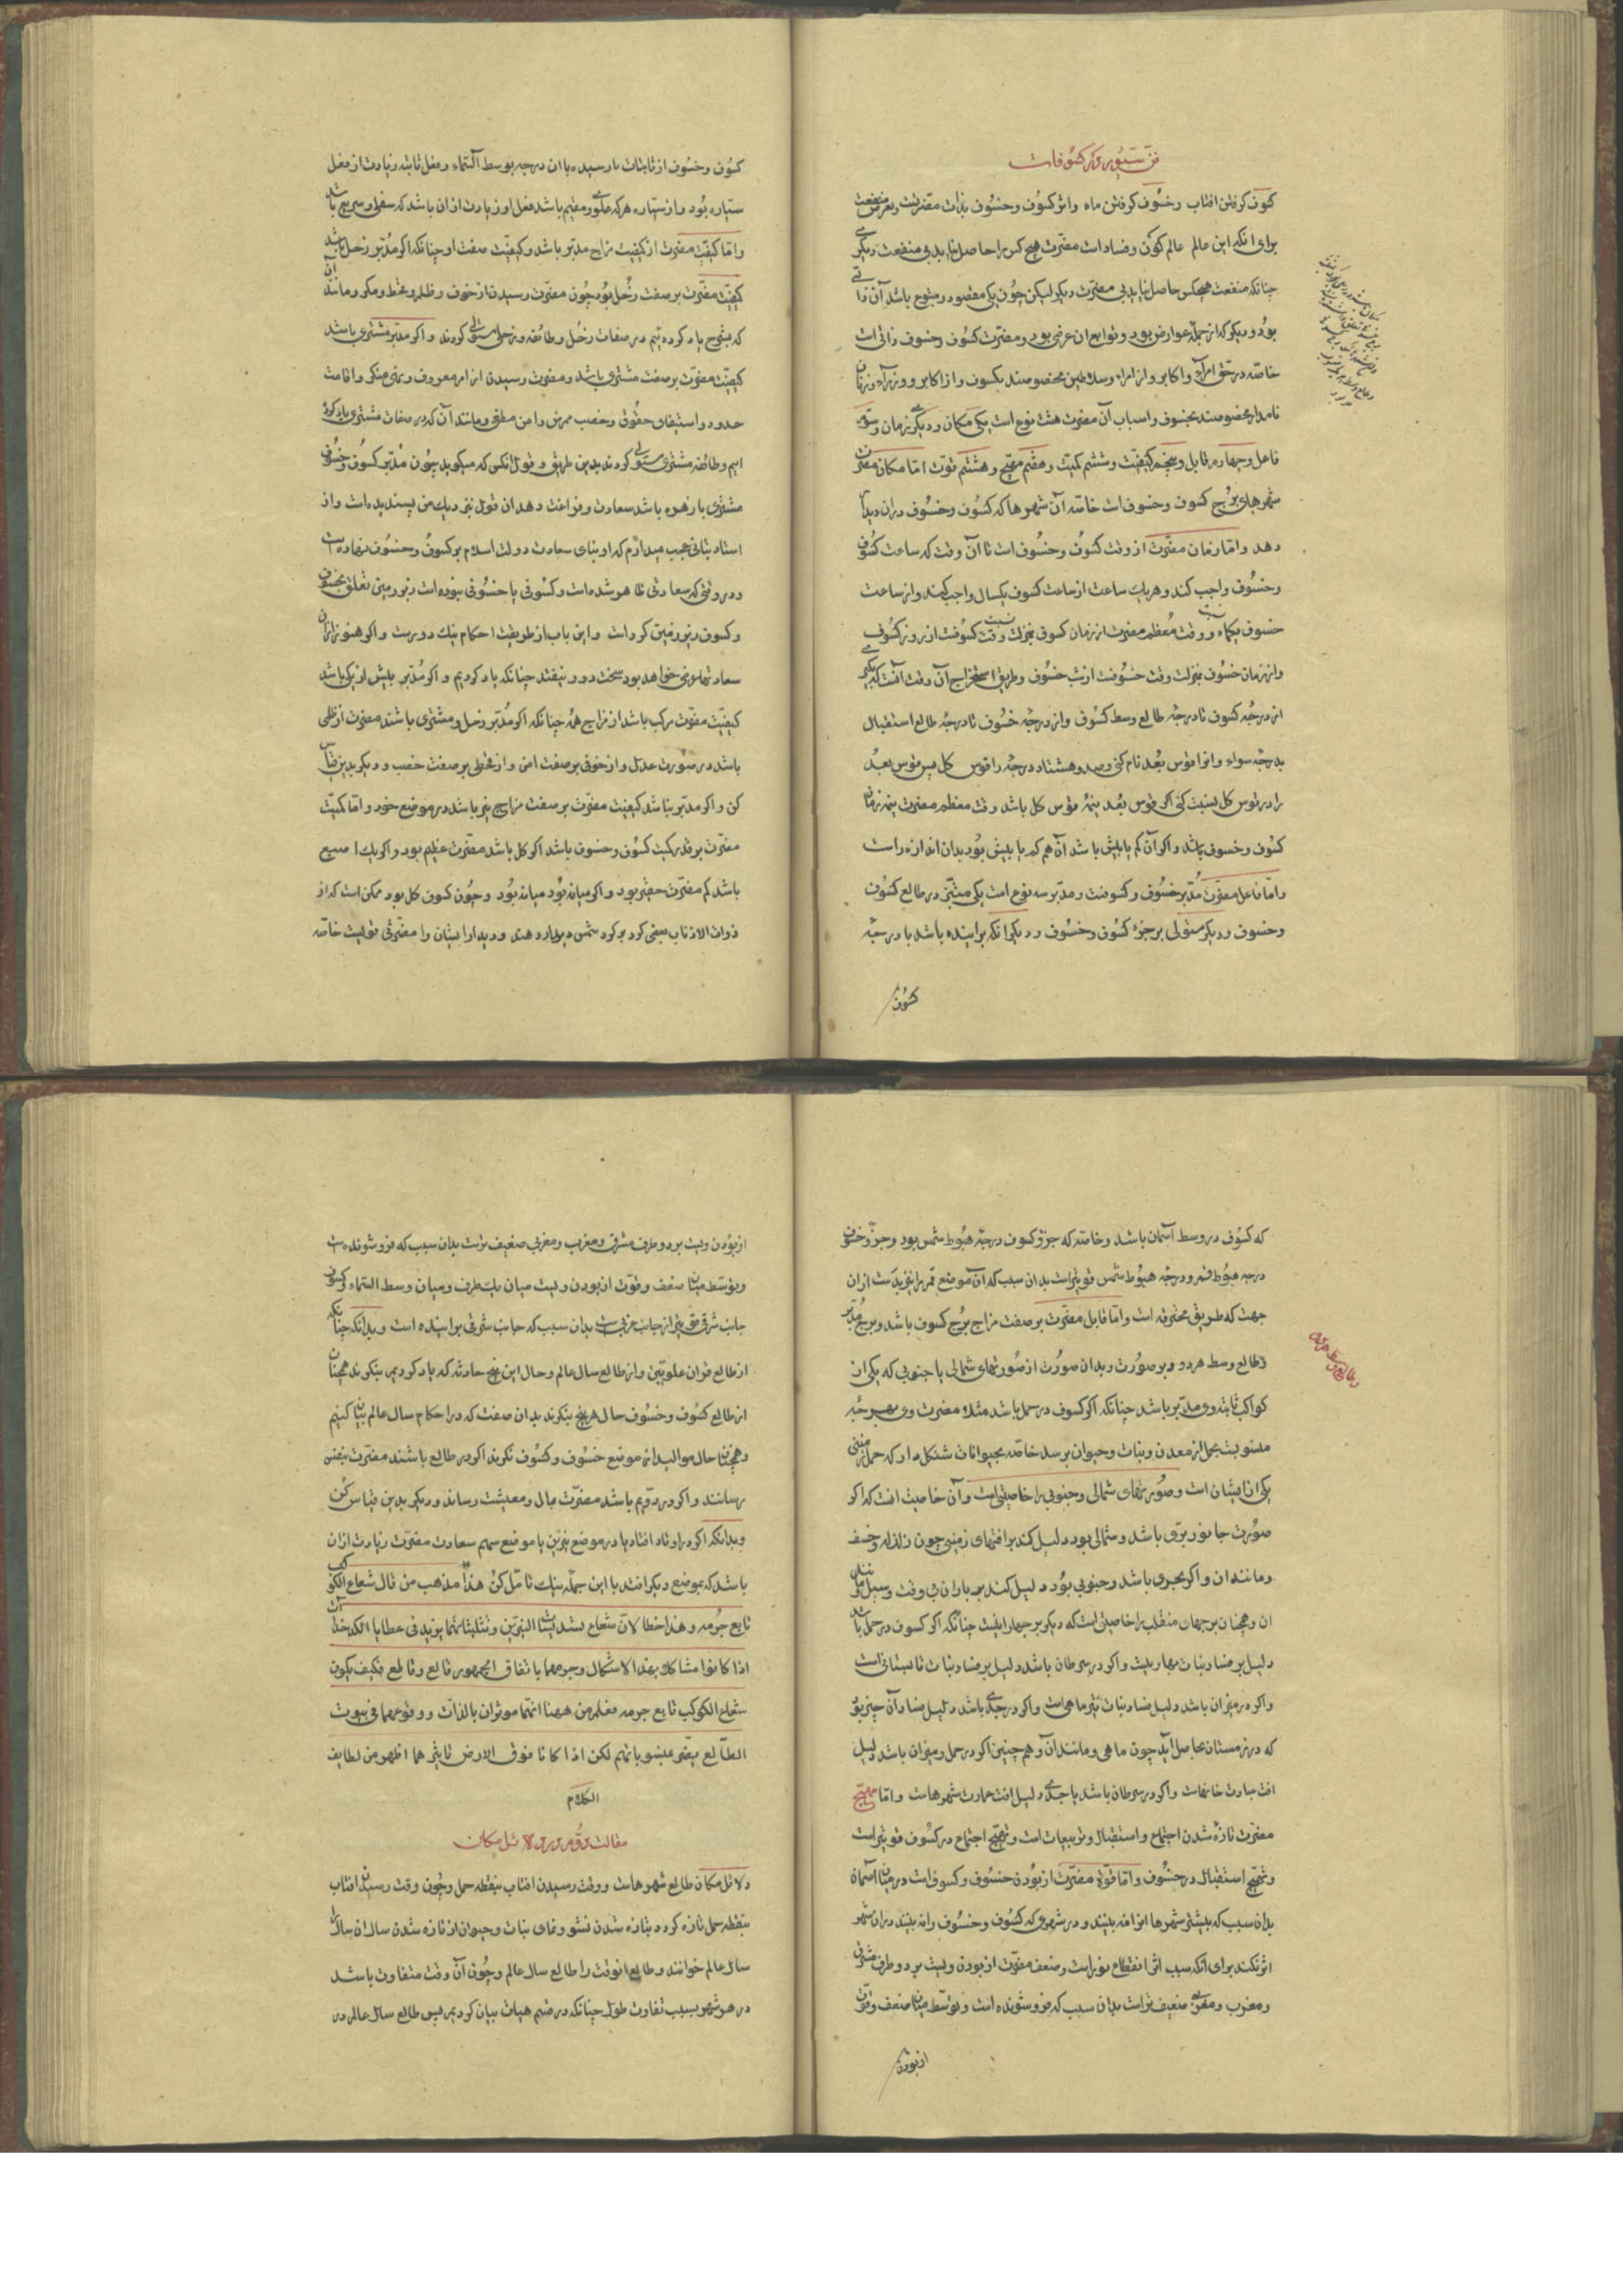 فن سیوم در کسوفات
کسوف گرفتن افتاب و خسوف گرفتن ماه و اثر کسوف و خسوف بذات مضرتست و بعرض منفعت
برای انکه این عالم عالم کون و فساد است مضرت هیچ کس را حاصل نیاید بی منفعت دیگری
چنانکه منفعت هیچکس حاصل نیاید بی مضرت دیگر لیکن چون یکی مقصود و متبوع باشد آن ذاتی
بود و دیگر که از جمله عوارض بود و توابع ان عرضی بود و مضرت کسوف و خسوف ذاتی است
خاصه در حق امرا و اکابر و از امراء و سلاطین مخصوصند بکسوف و از اکابر و وزراء و زنان
نامدار مخصوصند بخسوف و اسباب آن مضرت هشت نوع است یکی مکان و دیگر زمان و سیوم
فاعل و چهارم قابل و پنجم کیفیت و ششم کمیت و هفتم مهیج و هشتم قوت اما مکان مضرت
شهرهای برج کسوف و خسوف است خاصه آن شهرها که کسوف و خسوف در ان دیدار
دهد و اما زمان مضرت از وقت کسوف و خسوف است تا آن وقت که ساعت کسوف
و خسوف واجب کند و هر یک ساعت از ساعت کسوف یکسال واجب کند و از ساعت
خسوف یکماه و وقت معظم مضرت از زمان کسوف بمنزلت وقت کسوفست از روز کسوف
و از زمان خسوف بمنزلت وقت خسوفست از شب خسوف و طریق استخراج آن وقت آنست که بگیری
از درجه کسوف تا درجه طالع وسط کسوف و از درجه خسوف تا درجه طالع استقبال
بدرجه سواء و انرا قوس بعد نام کنی و صد و هشتاد درجه را قوس کل پس قوس بعد
را در قوس کل نسبت کنی اگر قوس بعد نیمه قوس کل باشد وقت معظم مضرت نیمه زمان
کسوف و خسوف باشد و اگر آن کم یا بیش باشد آن هم کم یا بیش بود بدان اندازه راست
و اما فاعل مضرت مدبر خسوف و کسوفست و مدبر سه نوع است یکی مبتز در طالع کسوف
و خسوف و دیگر مستولی بر جزء کسوف و خسوف و دیگر انکه براینده باشد با درجه
کسوف
کسوف و خسوف از ثابتات یا رسیده با ان درجه بوسط السماء و فعل ثابته زیادت از فعل
ستاره بود و از ستاره هر که علوی و مقیم باشد فعل او زیادت از ان باشد که سفلی و سریع باشد
و اما کیفیت مضرت از کیفیت مزاج مدبر باشد و کیفیت صفت او چنانکه اگر مدبر زحل باشد
کیفیت مضرت بر صفت زحل بود چون مضرت رسیدن از خوف و ظلم و قحط و مکر و مانند ان
که بشرح یاد کرده ایم در صفات زحل و طائفه زحلی مستولی گردند و اگر مدبر مشتری باشد
کیفیت مضرت بر صفت مشتری باشد و مضرت رسیدن از امر معروف و نهی منکر و اقامت
حدود و استیفای حقوق و خصب ممرض و امن مطغی و مانند آن که در صفات مشتری یاد کرده
ایم و طائفه مشتری مستولی گردند بدین طریق و قول انکس که میگوید چون مدبر کسوف و خسوف
مشتری یا زهره باشد سعادت و فراغت دهد ان قول نزدیک من پسندیده است و از
استاد بتانی عجب میدارم که او بنای سعادت دولت اسلام بر کسوف و خسوف نهاده است
و در وقتی که سعادتی ظاهر شده است و کسوفی یا خسوفی نبوده است بزور زمین تعلق بخسوف
و کسوف زیر زمین کرد است و این باب از طریقت احکام نیک دور است و اگر هنوز از ان
سعادتها عرضی خواهد بود سخت دور بیفتد چنانکه یاد کردیم و اگر مدبر بیش از یکی باشد
کیفیت مضرت مرکب باشد از مزاج همه چنانکه اگر مدبر زحل و مشتری باشند مضرت از ظلمی
باشد در صورت عدل و از خوفی بر صفت امن و از قحطی بر صفت خصب و دیگر بدین قیاس
کن و اگر مدبر نباشد کیفیت مضرت بر صفت مزاج نیر باشد در موضع خود و اما کمیت
مضرت بر قدر کمیت کسوف و خسوف باشد اگر کل باشد مضرت عظیم بود و اگر یک اصبع
باشد کم مضرت حقیر بود و اگر میانه بود میانه بود و چون کسوف کل بود ممکن است که از
ذوات الاذناب بعضی گرد بر گرد شمس دیدار دهند و دیدار ایشان را مضرتی قویست خاصه
که کسوف در وسط آسمان باشد و خاصه که جزو کسوف درجه هبوط شمس بود و جزو خسوف
درجه هبوط قمر و درجه هبوط شمس قویتر است بدان سبب که ان موضع قمر را نیز بدست از ان
جهت که طریق محترقه است و اما قابل مضرت بر صفت مزاج برج کسوف باشد و برج مدبر
و طالع وسط هر دو و بر صورت و بدان صورت از صورتهای شمالی یا جنوبی که یکی از
کواکب ثابته وی مدبر باشد چنانکه اگر کسوف در حمل باشد مثلا مضرت وی بهر چه
منسوبست بحمل از معدن و نبات و حیوان برسد خاصه بحیوانات شکل دار که حمل از جنس
یکی از ایشان است و صورتهای شمالی و جنوبی را خاصیتی است و آن خاصیت انست که اگر
صورت جانور برق باشد و شمالی بود دلیل کند بر افتهای زمینی چون زلزله و خسف
و مانند ان و اگر بحری باشد و جنوبی بود دلیل کند بر باران بی وقت و سیل و مانند
ان و همچنان برجهای منقلب را خاصیتی است که دیگر برجها را نیست چنانکه اگر کسوف در حمل باشد
دلیل بر فساد نبات بهاریست و اگر در سرطان باشد دلیل بر فساد نبات تابستانی است
و اگر در میزان باشد دلیل فساد نبات تیر ماهی است و اگر در جدی باشد دلیل فساد آن چیز بود
که در زمستان حاصل آید چون ماهی و مانند آن و هم چنین اگر در حمل و میزان باشد دلیل
افت عبادت خانهاست و اگر در سرطان باشد یا جدی دلیل افت عمارت شهرهاست و اما مهیج
مضرت تازه شدن اجتماع و استقبال و تربیعات است و تهییج اجتماع در کسوف قویتر است
و تهییج استقبال در خسوف و اما قوة مضرت از بودن خسوف و کسوف است در میان آسمان
بدان سبب که بیشتر شهرها انرا نه بینند و در شهری که کسوف و خسوف را نه بینند در ان شهر
اثر نکند برای انکه سبب اثر انقطاع نور است و ضعف مضرت از بودن ویست بر دو طرف مشرق
و مغرب و مغربی ضعیف تر است بدان سبب که فرو شونده است و توسط میان ضعف و قوت
از بودن
از بودن ویست بر دو طرف مشرق و مغرب و مغربی ضعیف ترست بدان سبب که فرو شونده است
و توسط میان ضعف و قوت از بودن ویست میان یک طرف و میان وسط السماء و کسوف
جانب شرقی قوی تر از جانب غربی است بدان سبب که جانب شرقی براینده است و بدانکه چنانکه
از طالع قران علویین و از طالع سال عالم و حال این پنج حادثه که یاد کردیم بنگرند همچنان
از طالع کسوف و خسوف حال هر پنج بنگرند بدان صفت که در احکام سال عالم بیان کنیم
و همچنان حال موالید از موضع خسوف و کسوف نگرند اگر در طالع باشند مضرت بنفس
رسانند و اگر در دویم باشد مضرت بمال و معیشت رساند و دیگر بدین قیاس کن
و بدانکه اگر در اوتاد افتد یا در موضع نیرین یا موضع سهم سعادت مضرت زیادت از ان
باشد که بموضع دیگر افتد با این جمله نیک تامل کن هذا مذهب من قال شعاع الکوکب
تابع جرمه و هذا خطا لان شعاع تسدیسات النیرین و تثلیثاتهما یزید فی عطایا الکدخداه
اذا کانوا مشاکلة بهذا الاشکال و جرمهما باتفاق الجمهور قالع و قاطع فکیف یکون
شعاع الکوکب تابع جرمه فعلم من ههنا انهما موثران بالذات و وقوعهما فی بیوت
الطالع یضر بمنسوباتهم لکن اذا کانا فوق الارض تاثیرهما اظهر من لطایف
الکلام
مقالت دوم در دلائل مکان
دلائل مکان طالع شهرهاست و وقت رسیدن افتاب بنقطه حمل و چون وقت رسیدن افتاب
بنقطه حمل تازه گردد بتازه شدن نشو و نمای نبات و حیوان از تازه شدن سال ان سال را
سال عالم خوانند و طالع انوقت را طالع سال عالم و چون آن وقت متفاوت باشد
در هر شهر بسبب تفاوت طول چنانکه در قسم هیات بیان کردیم پس طالع سال عالم در